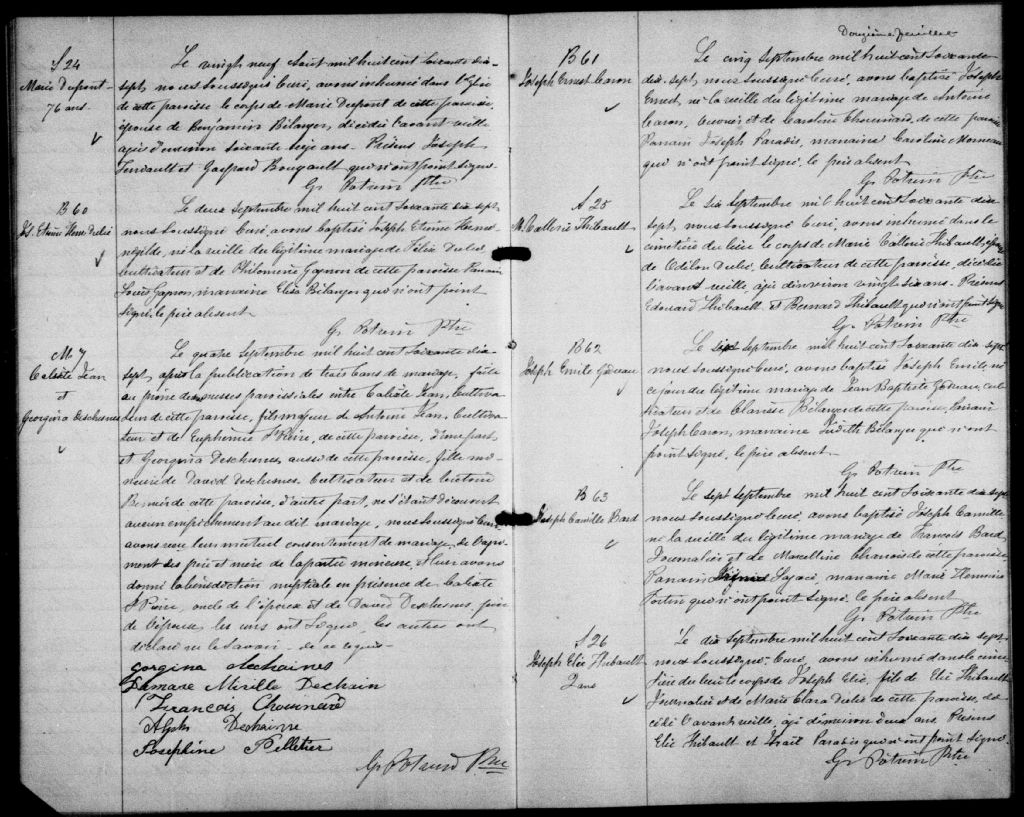 S 24
Marie Dupont
76 ans
Le vingt neuf Août mil huit cent soixante dix-
sept, nous soussigné Curé, avons inhumé dans l'Eglise
de cette paroisse le corps de Marie Dupont de cette paroisse,
épouse de Benjamin Bélanger, décédée l'avant veille
agée d'environ soixante seize ans. Présens Joseph
et Gaspard qui n'ont point signé
G. Potvin Ptre
B 60
Js. Etienne Herm. Dubé
Le deux Septembre mil huit cent soixante dix sept
nous soussigné Curé, avons baptisé Joseph Etienne Herme-
négilde, né la veille du légitime mariage de Félix Dubé,
cultivateur et de Philomène Gagnon de cette paroisse Parrain
Louis Gagnon, marraine Elise Bélanger qui n'ont point
signé. le père absent
G. Potvin Ptre
M 7
Calixte Jean
et
Georgina Deschesnes
Le quatre Septembre mil huit cent soixante dix-
sept après la publication de trois bans de mariage, faite
au prône des messes paroissiales entre Calixte Jean, Cultiva-
teur de cette paroisse, fils majeur de Antoine Jean, Cultiva-
teur et de Euphémie St Pierre, de cette paroisse, d'une part
et Georgina Deschesnes, aussi de cette paroisse, fille mi-
neure de David Deschesnes Cultivateur et de
Bernier de cette paroisse, d'autre part, ne s'étant découvert
aucun empêchement au dit mariage, nous soussigné Curé
avons reçu leur mutuel consentement de mariage, de l'agré-
ment des père et mère de la partie mineure, et leur avons
donné la bénédiction nuptiale en présence de Calixte
St Pierre, oncle de l'époux et de David Deschesnes, père
de l'épouse, les uns ont signé, les autres ont
déclaré ne le savoir. de ce requis
gorgina dechaines
Damase Mirille Dechain
Francois Chouinard
Alph Dechainne
Josephine Pelletier
G. Potvin Ptre
Douzième feuillet
B 61
Joseph Ernest Caron
Le cinq Septembre mil huit cent soixante
dix-sept, nous soussigné Curé, avons baptisé Joseph
Ernest, né la veille du légitime mariage de Antoine
Caron, et de Caroline Chouinard, de cette paroisse
Parrain Joseph Paradis, marraine Caroline Morneau
qui n'ont point signé, le père absent
G. Potvin Ptre
S 25
M. Callerie Thibault
Le six Septembre mil huit cent soixante dix
sept, nous soussigné Curé, avons inhumé dans le
cimetière du lieu le corps de Marie Callerie Thibault, épouse
de Odilon Dubé, Cultivateur de cette paroisse, décédée
l'avant veille, agée d'environ vingt six ans. Présens
Edouard Thibault et Bernard Thibault qui n'ont point signé
G. Potvin Ptre
B 62
Joseph Emile Godreau
Le sept Septembre mil huit cent soixante dix sept
nous soussigné Curé, avons baptisé Joseph Emile, né
ce jour du légitime mariage de Jean Baptiste Godreau, cul-
tivateur et de Clarisse Bélanger de cette paroisse, Parrain
Joseph Caron, marraine Judith Bélanger qui n'ont
point signé, le père absent.
G. Potvin Ptre
B 63
Joseph Camille Bard
Le sept Septembre mil huit cent soixante dix sept
nous soussigné Curé, avons baptisé Joseph Camille
né la veille du légitime mariage de François Bard,
Journalier et de Marcelline de cette paroisse
Parrain marraine Marie
Fortin qui n'ont point signé. le père absent
G. Potvin Ptre
S 26
Joseph Elie Thibault
2 ans
Le dix Septembre mil huit cent soixante dix sept
nous soussigné Curé, avons inhumé dans le cime-
tière du lieu le corps de Joseph Elie, fils de Elie Thibault
Journalier et de Marie Clara Dubé de cette paroisse, dé-
cédé l'avant veille, agé d'environ deux ans. Présens
Elie Thibault et Paradis qui n'ont point signé.
G. Potvin Ptre